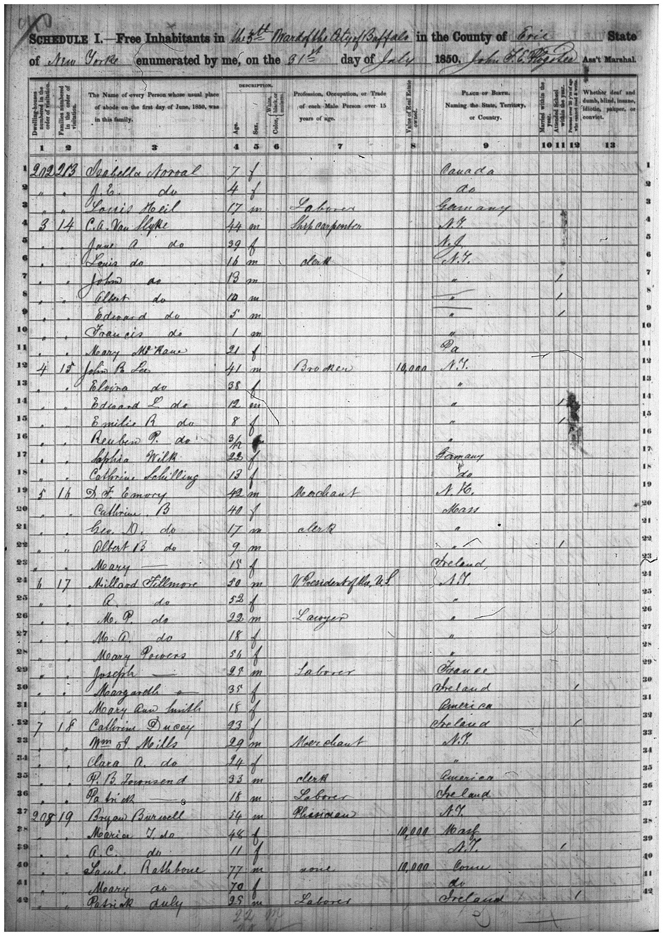 SCHEDULE I.—Free Inhabitants in the 5th Ward of the City of Buffalo in the County of Erie State
of New York enumerated by me, on the 31st day of July 1850. John Ass't Marshal.
Dwelling-houses numbered in the order of visitation. Families numbered in the order of visitation. The Name of every Person whose usual place of abode on the first day of June, 1850, was in this family. DESCRIPTION. Age. Sex. Color, White, black, or mulatto. Profession, Occupation, or Trade of each Male Person over 15 years of age. Value of Real Estate owned. PLACE OF BIRTH. Naming the State, Territory, or Country. Married within the year. Attended School within the year. Whether deaf and dumb, blind, insane, idiotic, pauper, or convict.
1 2 3 4 5 6 7 8 9 10 11 12 13
1 202 213 Isabella Norval 7 f Canada 1
2 " " J. E. do 4 f do 2
3 " " Louis Heil 17 m Laborer Germany 3
4 3 14 C. A. Van Slyke 44 m Ship carpenter N.Y. 4
5 " " Jane A. do 39 f N.J. 5
6 " " Louis do 16 m clerk N.Y. 6
7 " " John do 13 m " 1 7
8 " " Albert do 10 m " 1 8
9 " " Edward do 5 m " 1 9
10 " " Francis do 1 m " 10
11 " " Mary McKane 21 f Pa 11
12 4 15 John R. Lee 41 m Broker 10,000 N.Y. 12
13 " " Elvira do 38 f " 13
14 " " Edward L. do 12 m " 1 14
15 " " Emilie R. do 8 f " 1 15
16 " " Reuben P. do " 16
17 " " Sophia Wilk 22 f Germany 17
18 " " Cathrine Schilling 13 f do 18
19 5 16 Emory 42 m Merchant N.H. 19
20 " " Cathrine B 40 f Mass 20
21 " " Geo. D. do 17 m clerk " 21
22 " " Albert B do 9 m " 1 22
23 " " Mary — 18 f Ireland 23
24 6 17 Millard Fillmore 50 m V President of the U.S. N.Y. 24
25 " " A. do 52 f " 25
26 " " M. P. do 22 m Lawyer " 26
27 " " M. A. do 18 f " 27
28 " " Mary Powers 56 f " 28
29 " " Joseph — 25 m Laborer France 29
30 " " Margardth — 35 f Ireland 1 30
31 " " Mary Ann Smith 18 f America 31
32 7 18 Cathrine Ducey 23 f Ireland 1 32
33 " " Wm A Mills 29 m Merchant N.Y. 33
34 " " Clara A. do 24 f " 34
35 " " R. B Townsend 33 m clerk America 35
36 " " Patrick — 18 m Laborer Ireland 36
37 208 19 Bryan Burwell 54 m Phisician N.Y. 37
38 " " Maria T. do 48 f 10,000 Mass 38
39 " " A. C. do 11 f N.Y. 1 39
40 " " Saml. Rathbone 77 m none 10,000 Conn 40
41 " " Mary do 70 f do 41
42 " " Patrick July 25 m Laborer Ireland 1 42
22 m